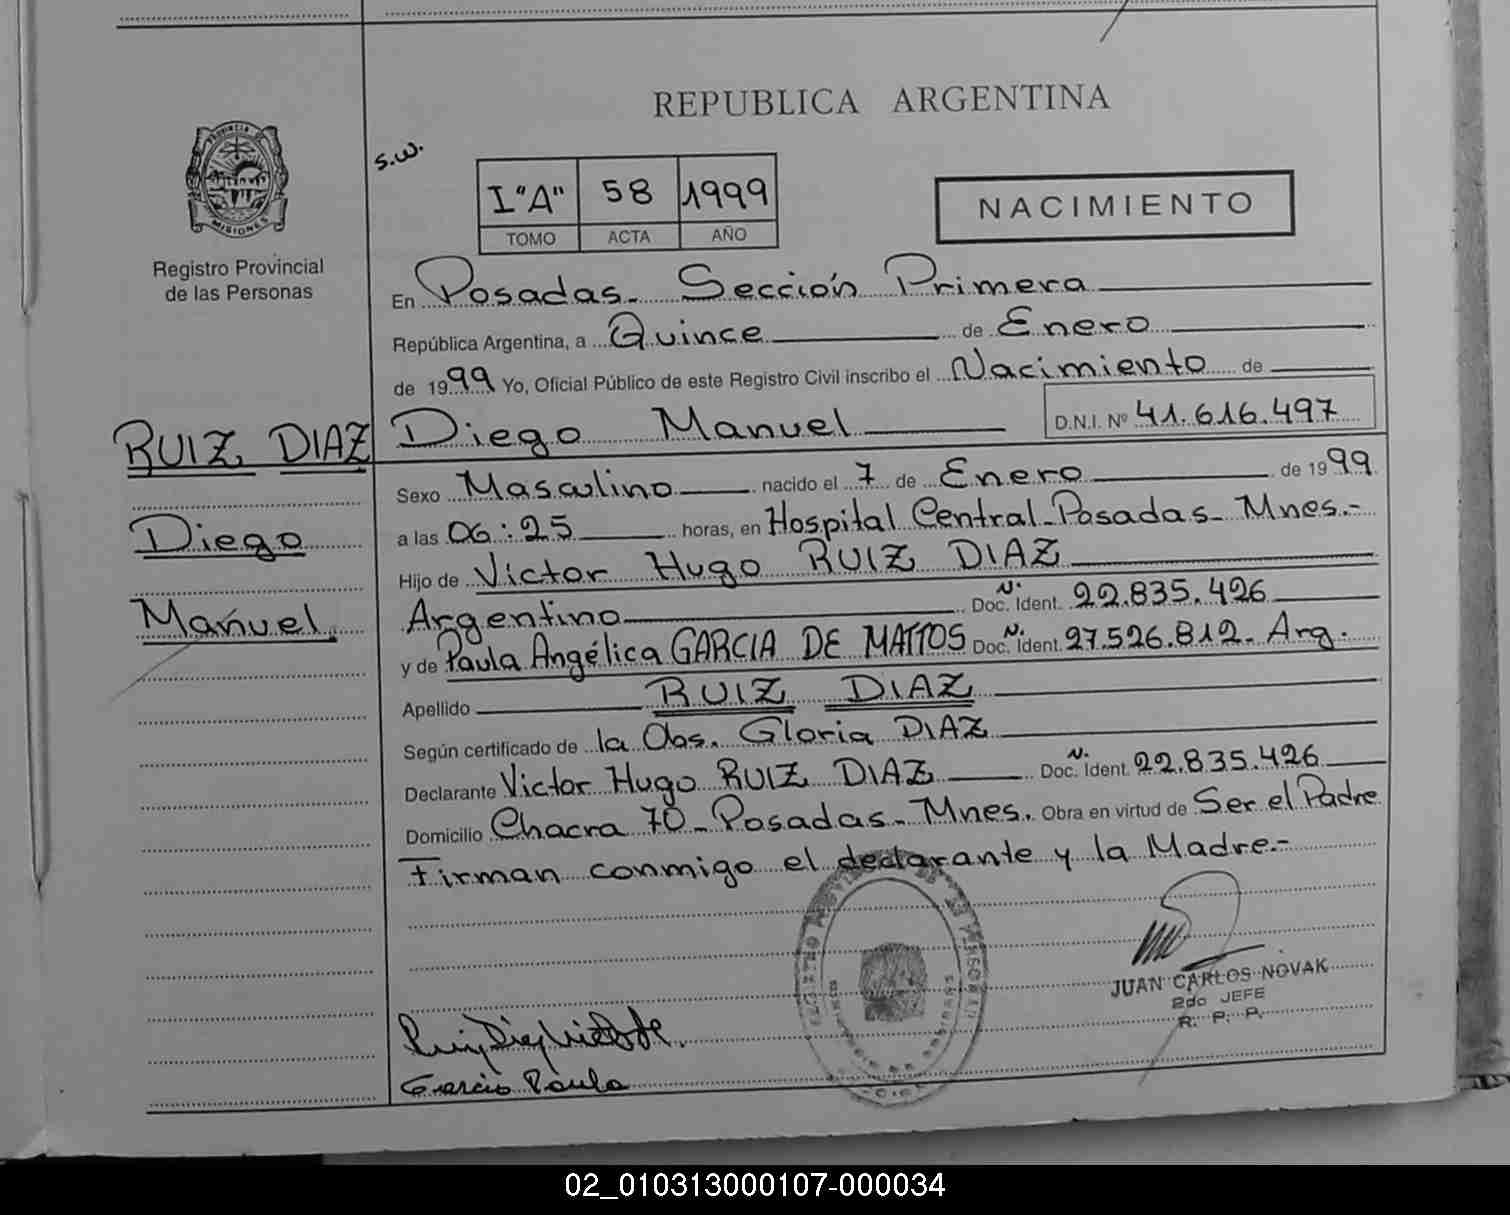 REPUBLICA ARGENTINA
PROVINCIA DE
MISIONES
Registro Provincial
de las Personas
s.w.
I "A" 58 1999
TOMO ACTA AÑO
NACIMIENTO
En Posadas. Sección Primera
República Argentina, a Quince de Enero
de 1999 Yo, Oficial Público de este Registro Civil inscribo el Nacimiento de
RUIZ DIAZ
Diego
Manuel
Diego Manuel D.N.I. Nº 41.616.497
Sexo Masculino nacido el 7 de Enero de 1999
a las 06:25 horas, en Hospital Central-Posadas- Mnes.-
Hijo de Victor Hugo RUIZ DIAZ
Argentino Doc. N. Ident. 22.835.426
y de Paula Angélica GARCIA DE MATTOS Doc. N. Ident. 27.526.812. Arg.
Apellido RUIZ DIAZ
Según certificado de la Obs. Gloria DIAZ
Declarante Victor Hugo RUIZ DIAZ Doc. N. Ident. 22.835.426
Domicilio Chacra 70- Posadas- Mnes. Obra en virtud de Ser el Padre
Firman conmigo el declarante y la Madre.-
JUAN CARLOS NOVAK
2do JEFE
R. P. P.
Garcia Paula
02_010313000107-000034